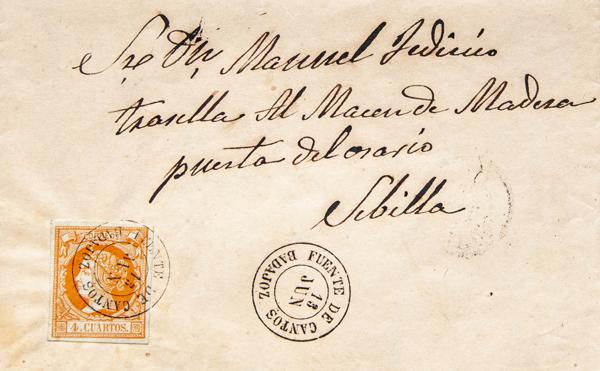 Sr Dn Manuel Federico
trasella Al Macen de Madera
puerta del osario
Sibilla
FUENTE DE CANTOS
BADAJOZ
13
JUN
FUENTE DE CANTOS
BADAJOZ
13
JUN
4 CUARTOS.